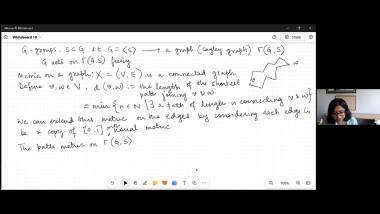 Whiteboard 10
G-groups, S⊂G st G=<S> ⟶ a graph (Cayley graph) Γ(G,S)
G acts on Γ(G,S) freely
Metric on a graph: X = (V, E) is a connected graph
Define v, w ∈ V, d(v,w) := the length of the shortest path joining v & w
= min {n ∈ N | ∃ a path of length n connecting v & w}
We can extend this metric on the edges by considering each edge to
be a copy of [0,1] with usual metric
The path metric on Γ(G,S)
100%